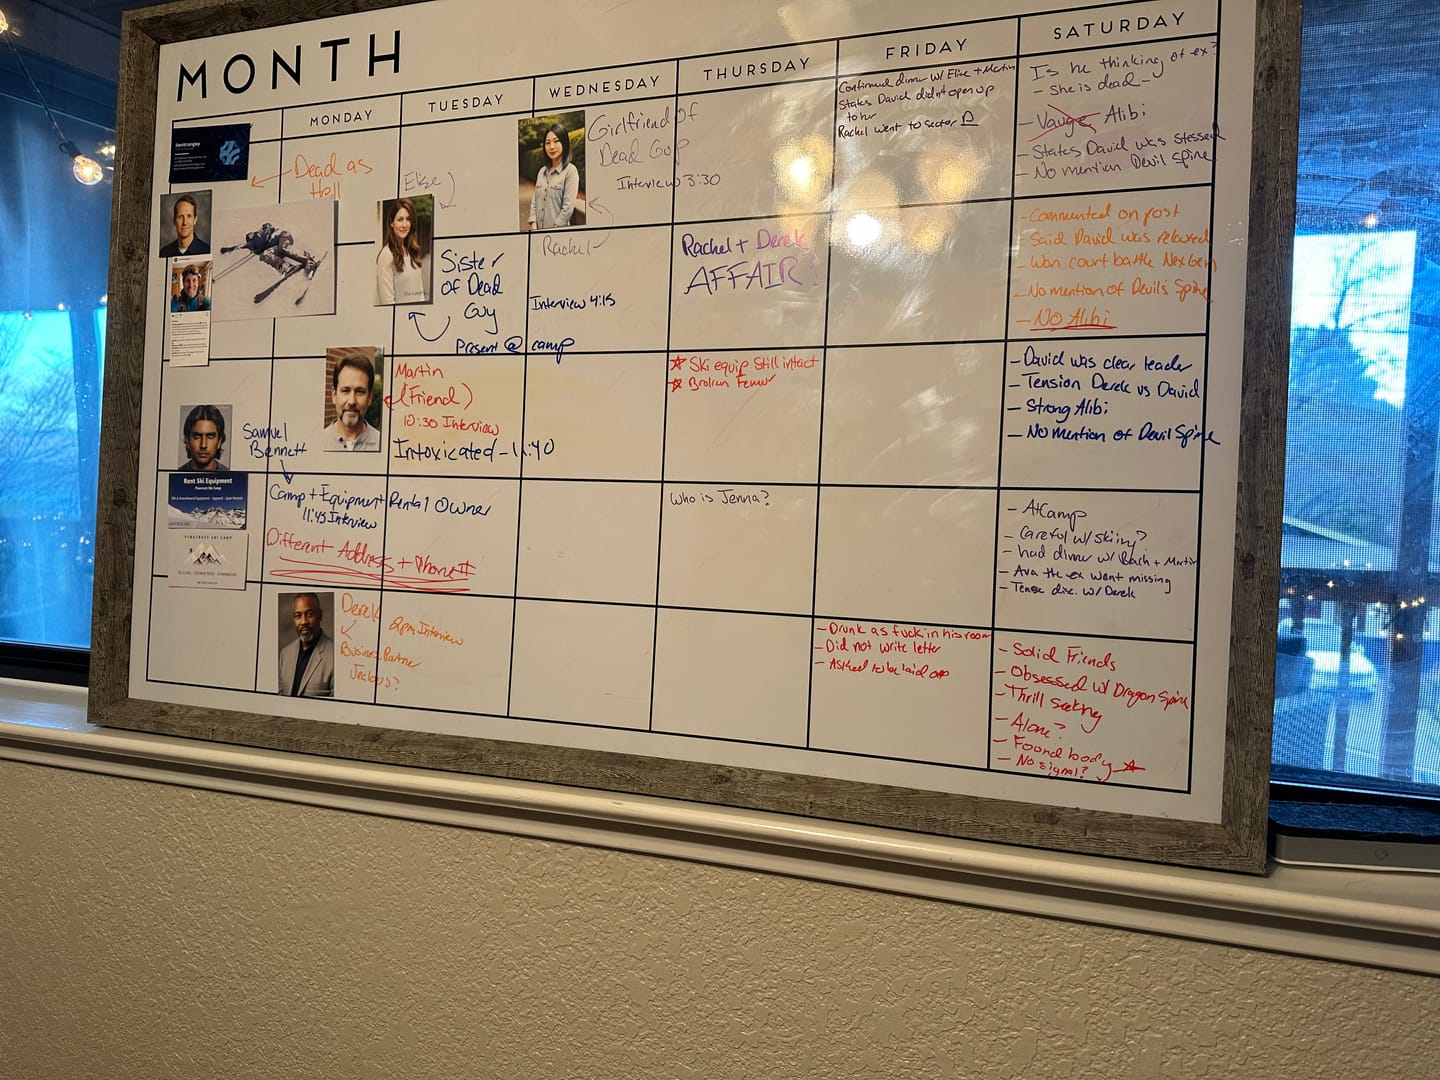 MONTH
MONDAY
TUESDAY
WEDNESDAY
THURSDAY
FRIDAY
SATURDAY
David Langley
Dead as
Hell
Elise
Sister
of Dead
Guy
Present @ camp
Girlfriend of
Dead Guy
Interview 3:30
Rachel
Interview 4:15
Rachel + Derek
AFFAIR?
Confirmed dinner w/ Elise + Martin
States David didn't open up
to her
Rachel went to sector D
Is he thinking of ex?
- She is dead -
- Vauge Alibi
- States David was stessed
- No mention Devil Spine
- Commented on post
- Said David was relaxed
- Won court battle NexGen
- No mention of Devil's Spine
- No Alibi
Martin
(Friend)
10:30 Interview
Intoxicated - 11:40
☆ Ski equip still intact
☆ Broken Femur
- David was clear leader
- Tension Derek vs David
- Strong Alibi
- No mention of Devil Spine
Samuel
Bennett
Rent Ski Equipment
Pinecrest Ski Camp
PINECREST SKI CAMP
Camp + Equipment Rental Owner
11:45 Interview
Different Address + Phone #
Who is Jenna?
- At Camp
- Careful w/ skiing?
- had dinner w/ Rach + Martin
- Ava the ex went missing
- Tense disc. w/ Derek
Derek
2pm Interview
Business Partner
Jealous?
- Drunk as fuck in his room
- Did not write letter
- Asked to be laid off
- Solid Friends
- Obsessed w/ Dragon Spine
- Thrill seeking
- Alone?
- Found body
- No signal?